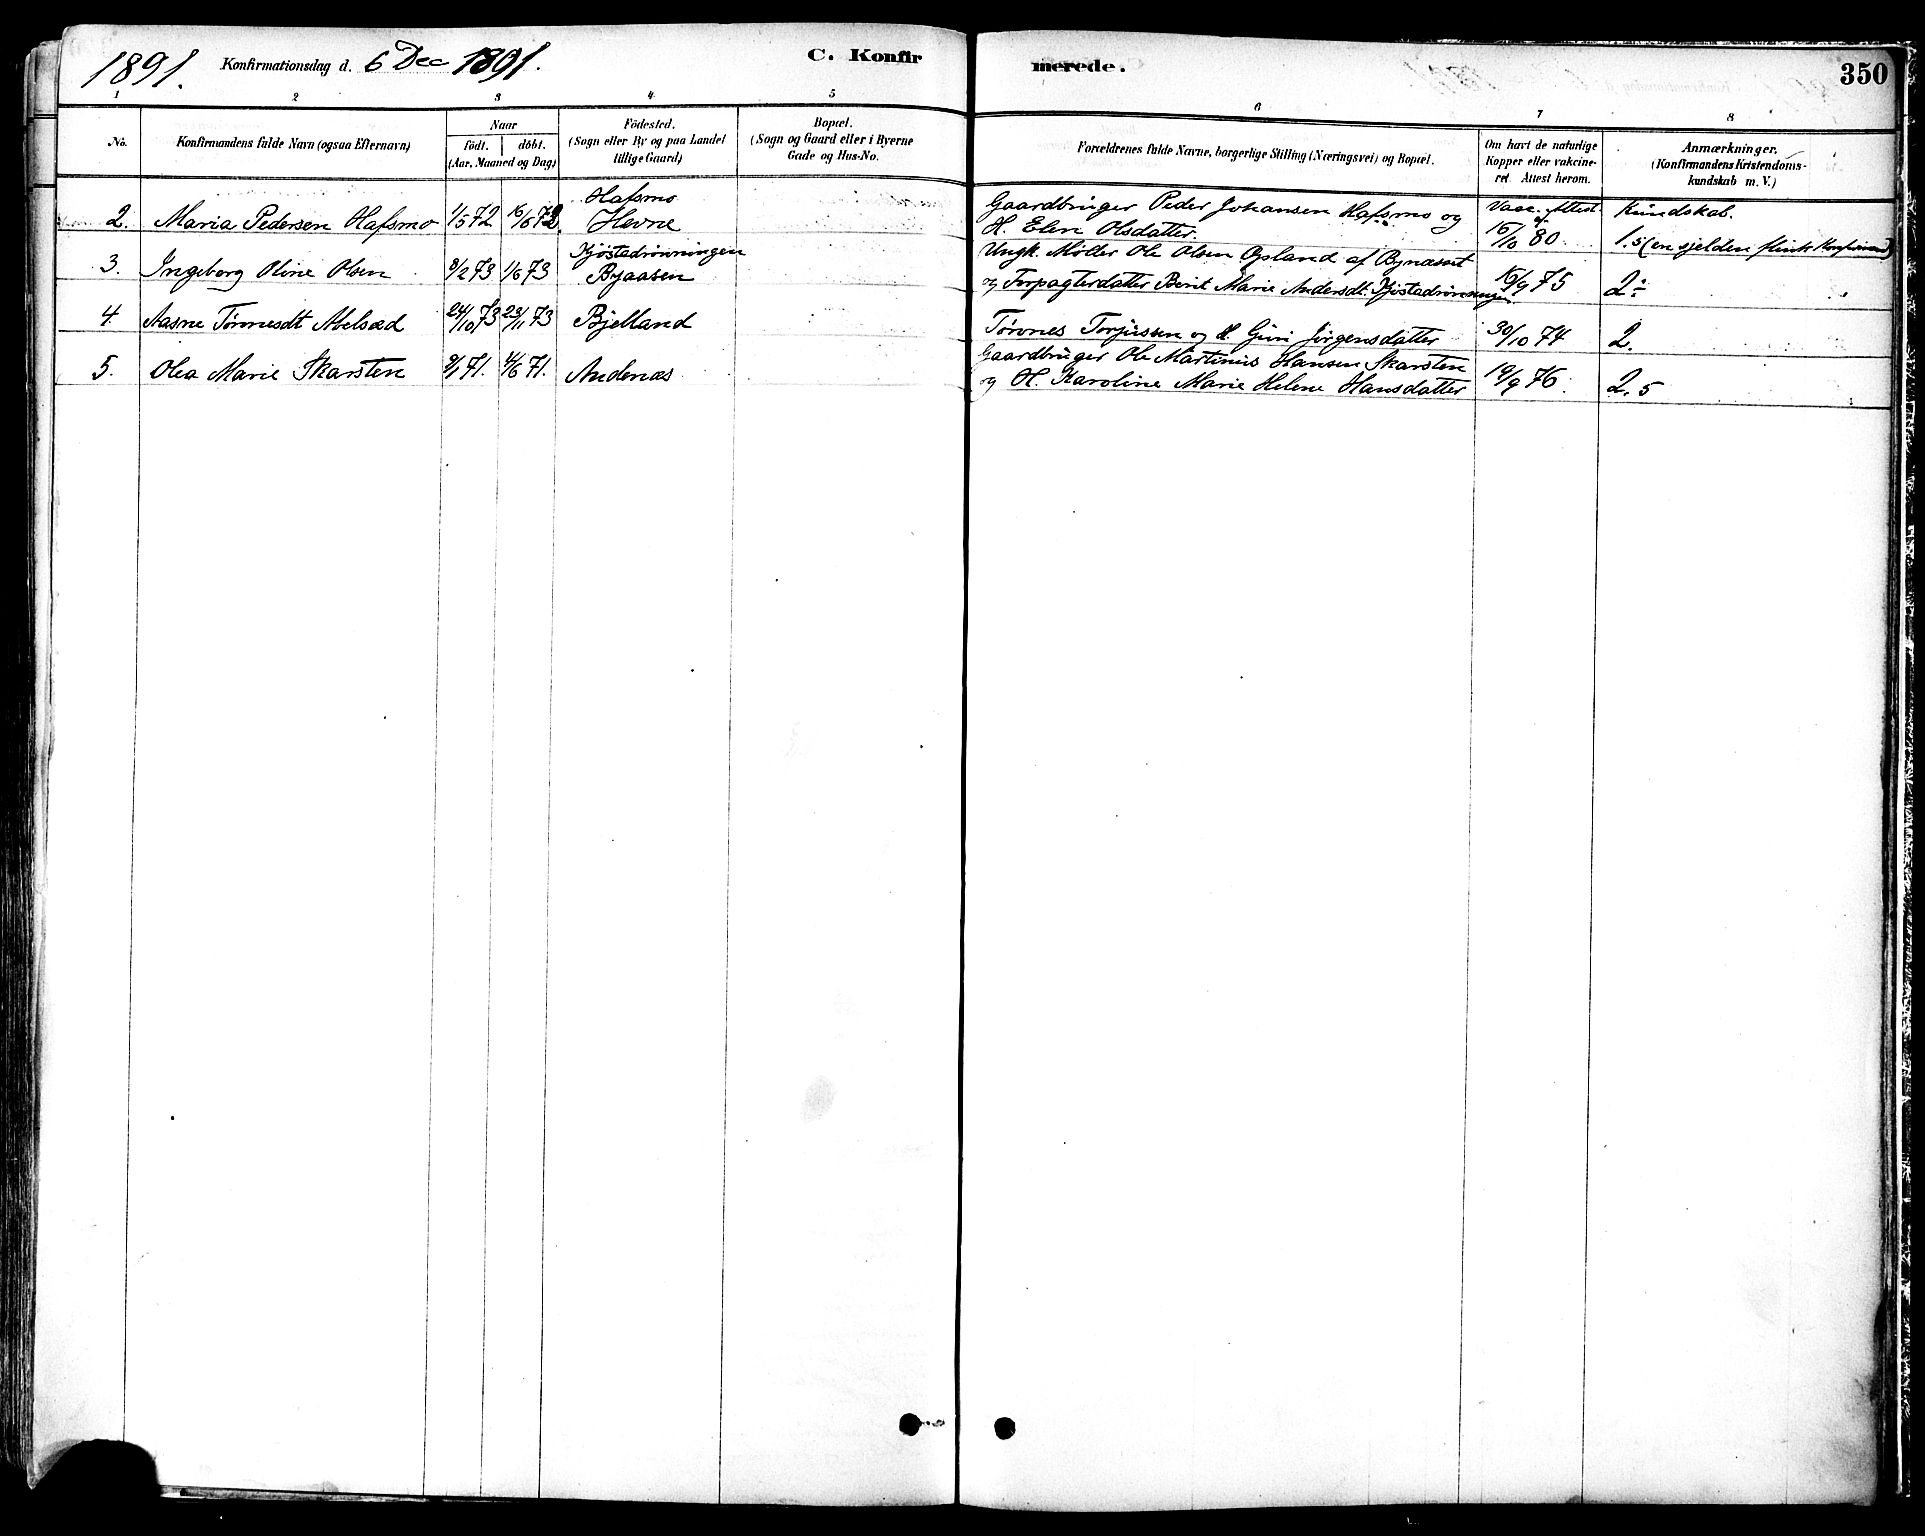 1891. Konfirmationsdag d. 6 Dec 1891. C. Konfirmerede. 350
1 2 3 4 5 6 7 8
No. Konfirmandens fulde Navn (ogsaa Efternavn)
Naar
födt. döbt.
(Aar, Maaned og Dag)
Födested.
(Sogn eller By og paa Landet
tillige Gaard)
Bopæl.
(Sogn og Gaard eller i Byerne
Gade og Hus-No.
Forældrenes fulde Navne, borgerlige Stilling (Næringsvei) og Bopæl.
Om havt de naturlige
Kopper eller vakcine-
ret. Attest herom.
Anmærkninger.
(Konfirmandens Kristendoms-
kundskab m. V.)
2. Maria Pedersen Hafsmo 1/5 72 16/6 72. Hafsmo
Hevne
Gaardbruger Peder Johansen Hafsmo og
H. Elen Olsdatter.
Vacc. Attest. af
15/10 80
Kundskab.
1.5 (en sjelden flink Konfirmand)
3. Ingeborg Oline Olsen 8/2 73 1/6 73 Kjøstadrønningen
Byaasen
Ungk. Møller Ole Olsen Opland af Bynæsset
og Forpagterdatter Berit Marie Andersdt. Kjøstadrønningen.
16/9 75 2÷
4. Aasne Tørnesdt Abelsæd 24/10 73 23/11 73 Bjelland
Tørnes Torjussen og H. Guri Jörgensdatter 30/10 74 2.
5. Olea Marie Skarsten 9/1 71. 4/6 71. Andenæs
Gaardbruger Ole Martinus Hansen Skarsten
og H. Karoline Marie Helene Hansdatter 19/9 76 2.5